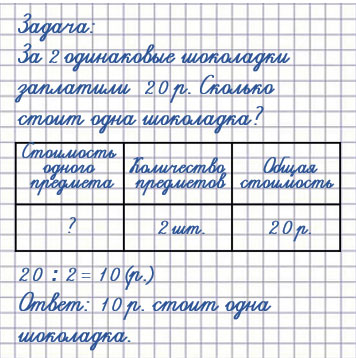 Задача:
За 2 одинаковые шоколадки
заплатили 20 р. Сколько
стоит одна шоколадка?
Стоимость одного предмета
Количество предметов
Общая стоимость
?
2 шт.
20 р.
20 : 2 = 10 (р.)
Ответ: 10 р. стоит одна
шоколадка.